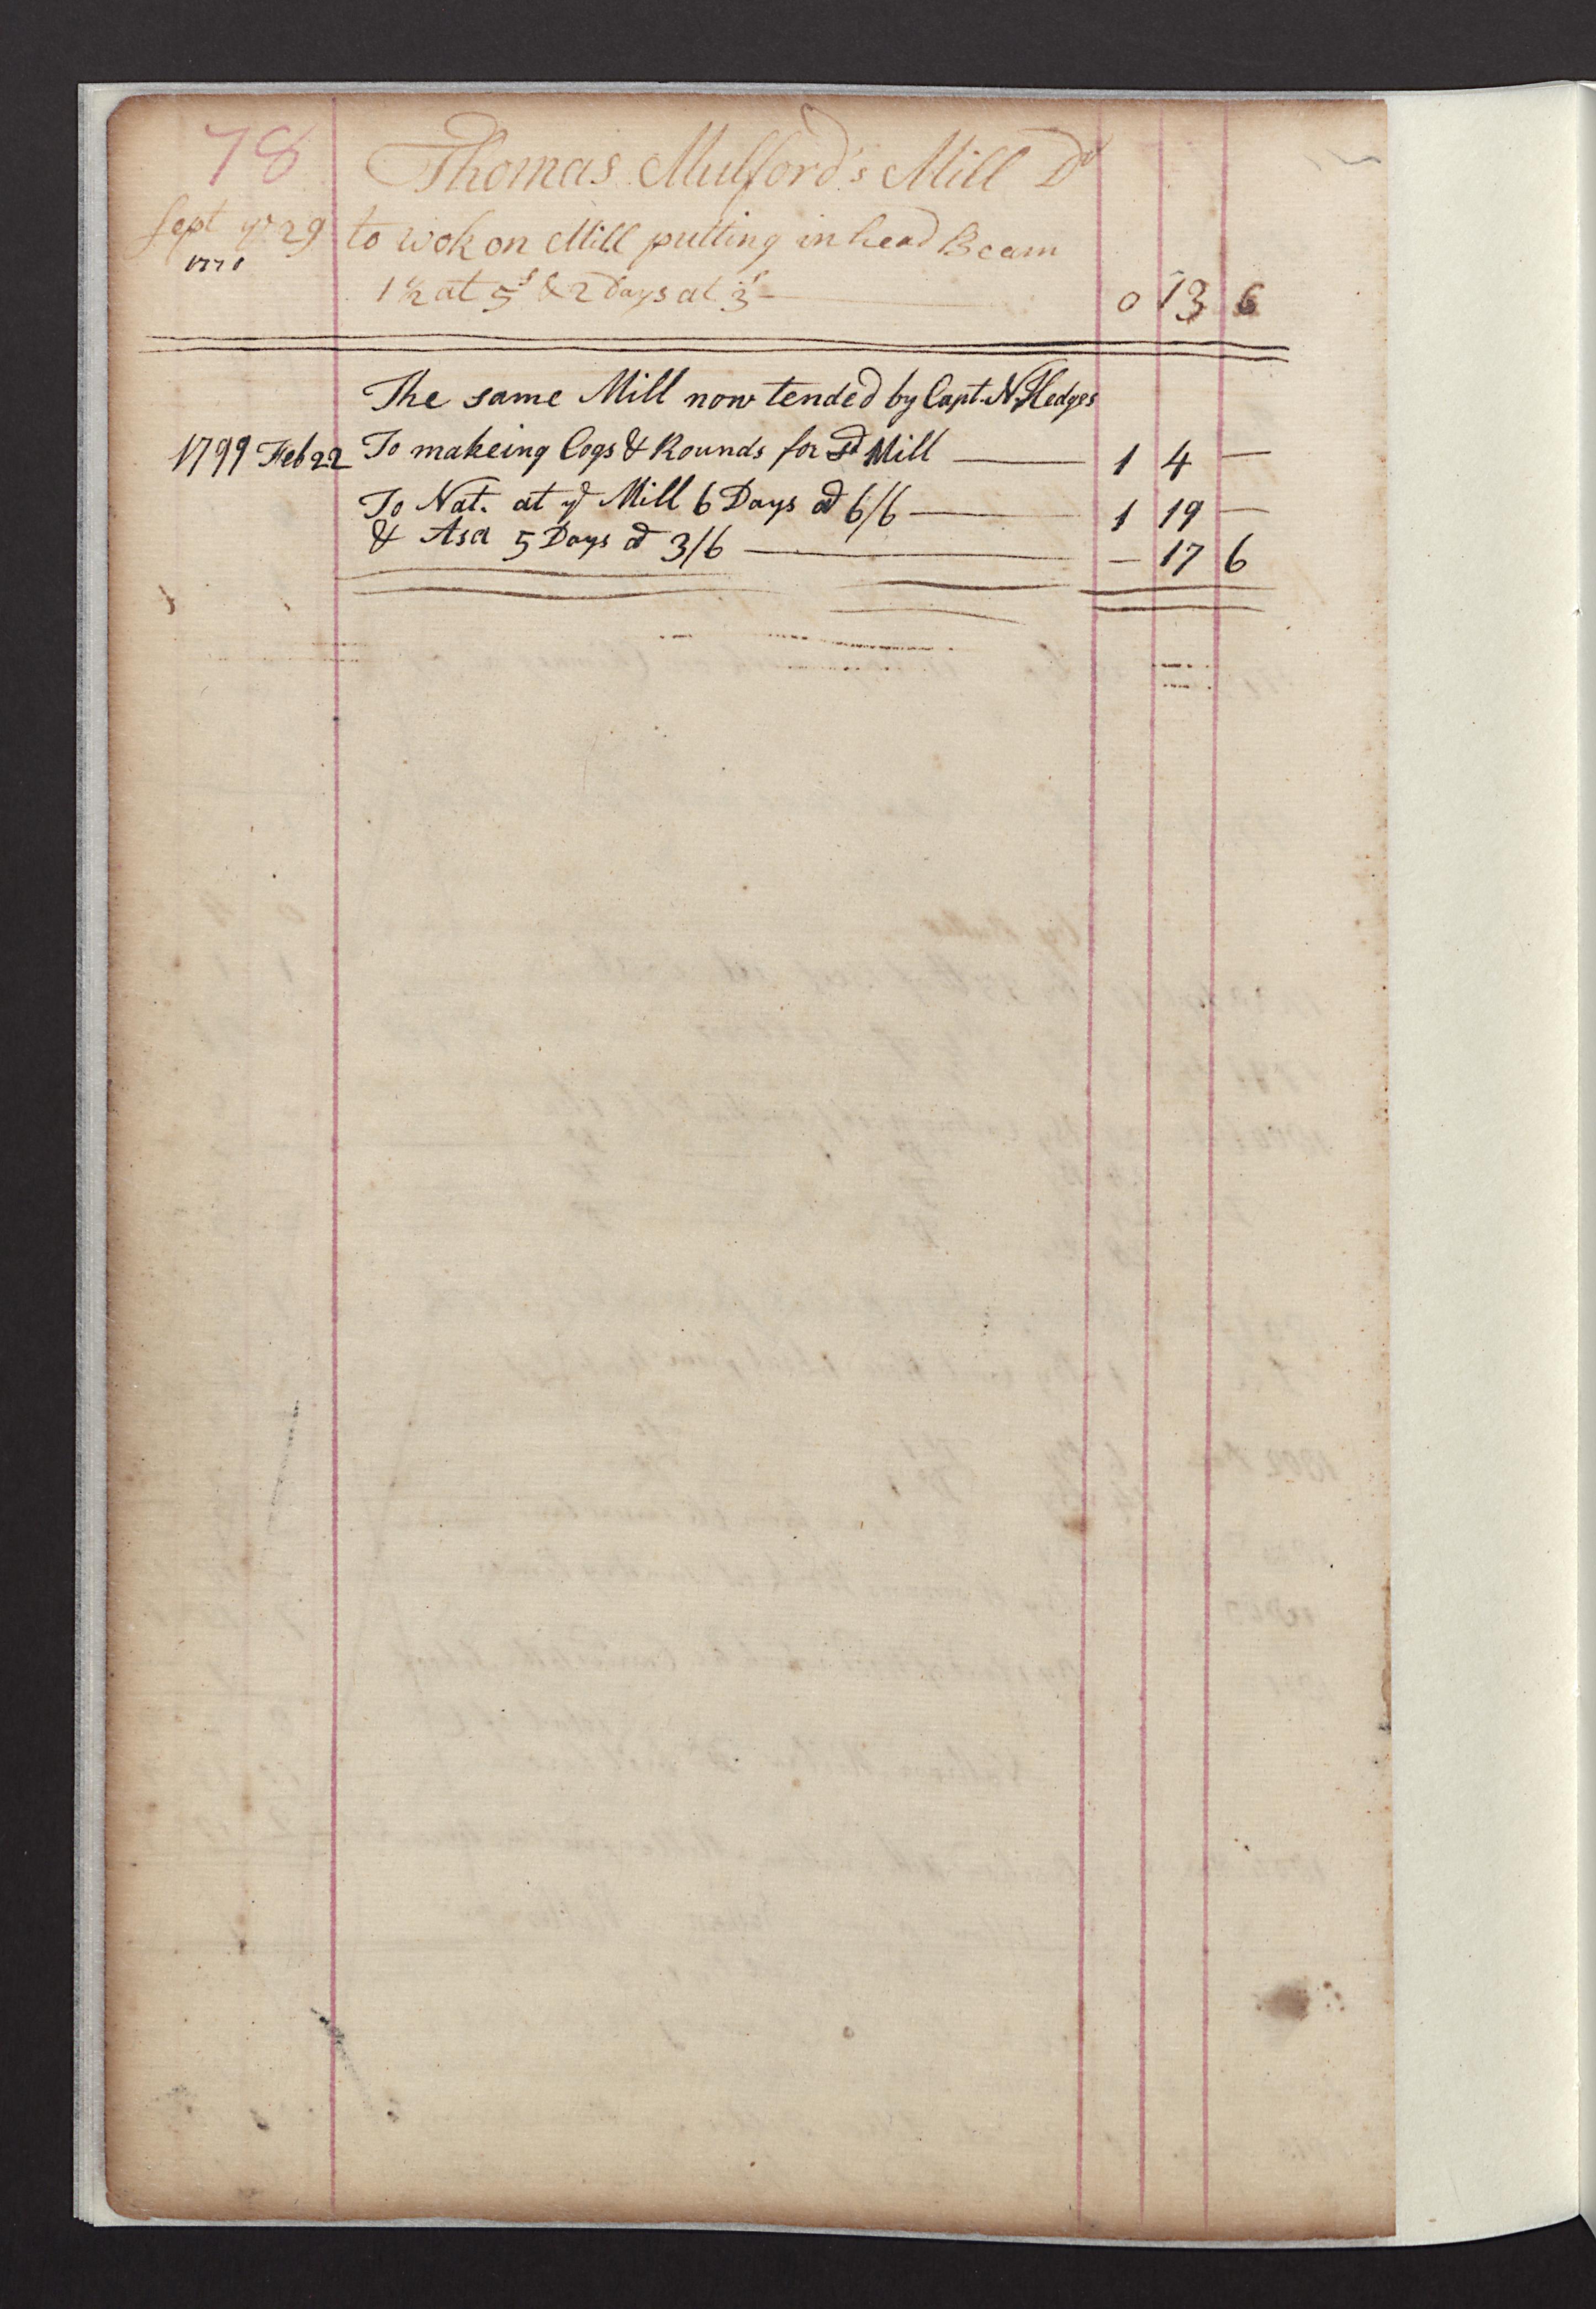 78 Thomas Mulford's Mill Dr
Sept ye 29 to wok on Mill putting in head Beam
1771
1 ½ at 5s & 2 Days at 3s — 0 13 6
The same Mill now tended by Capt. N. Hedges
1799 Feb 22 To makeing Cogs & Rounds for sd Mill — 1 4 —
To Nat. at ye Mill 6 Days @ 6/6 — 1 19 —
& Asa 5 Days @ 3/6 — — 17 6